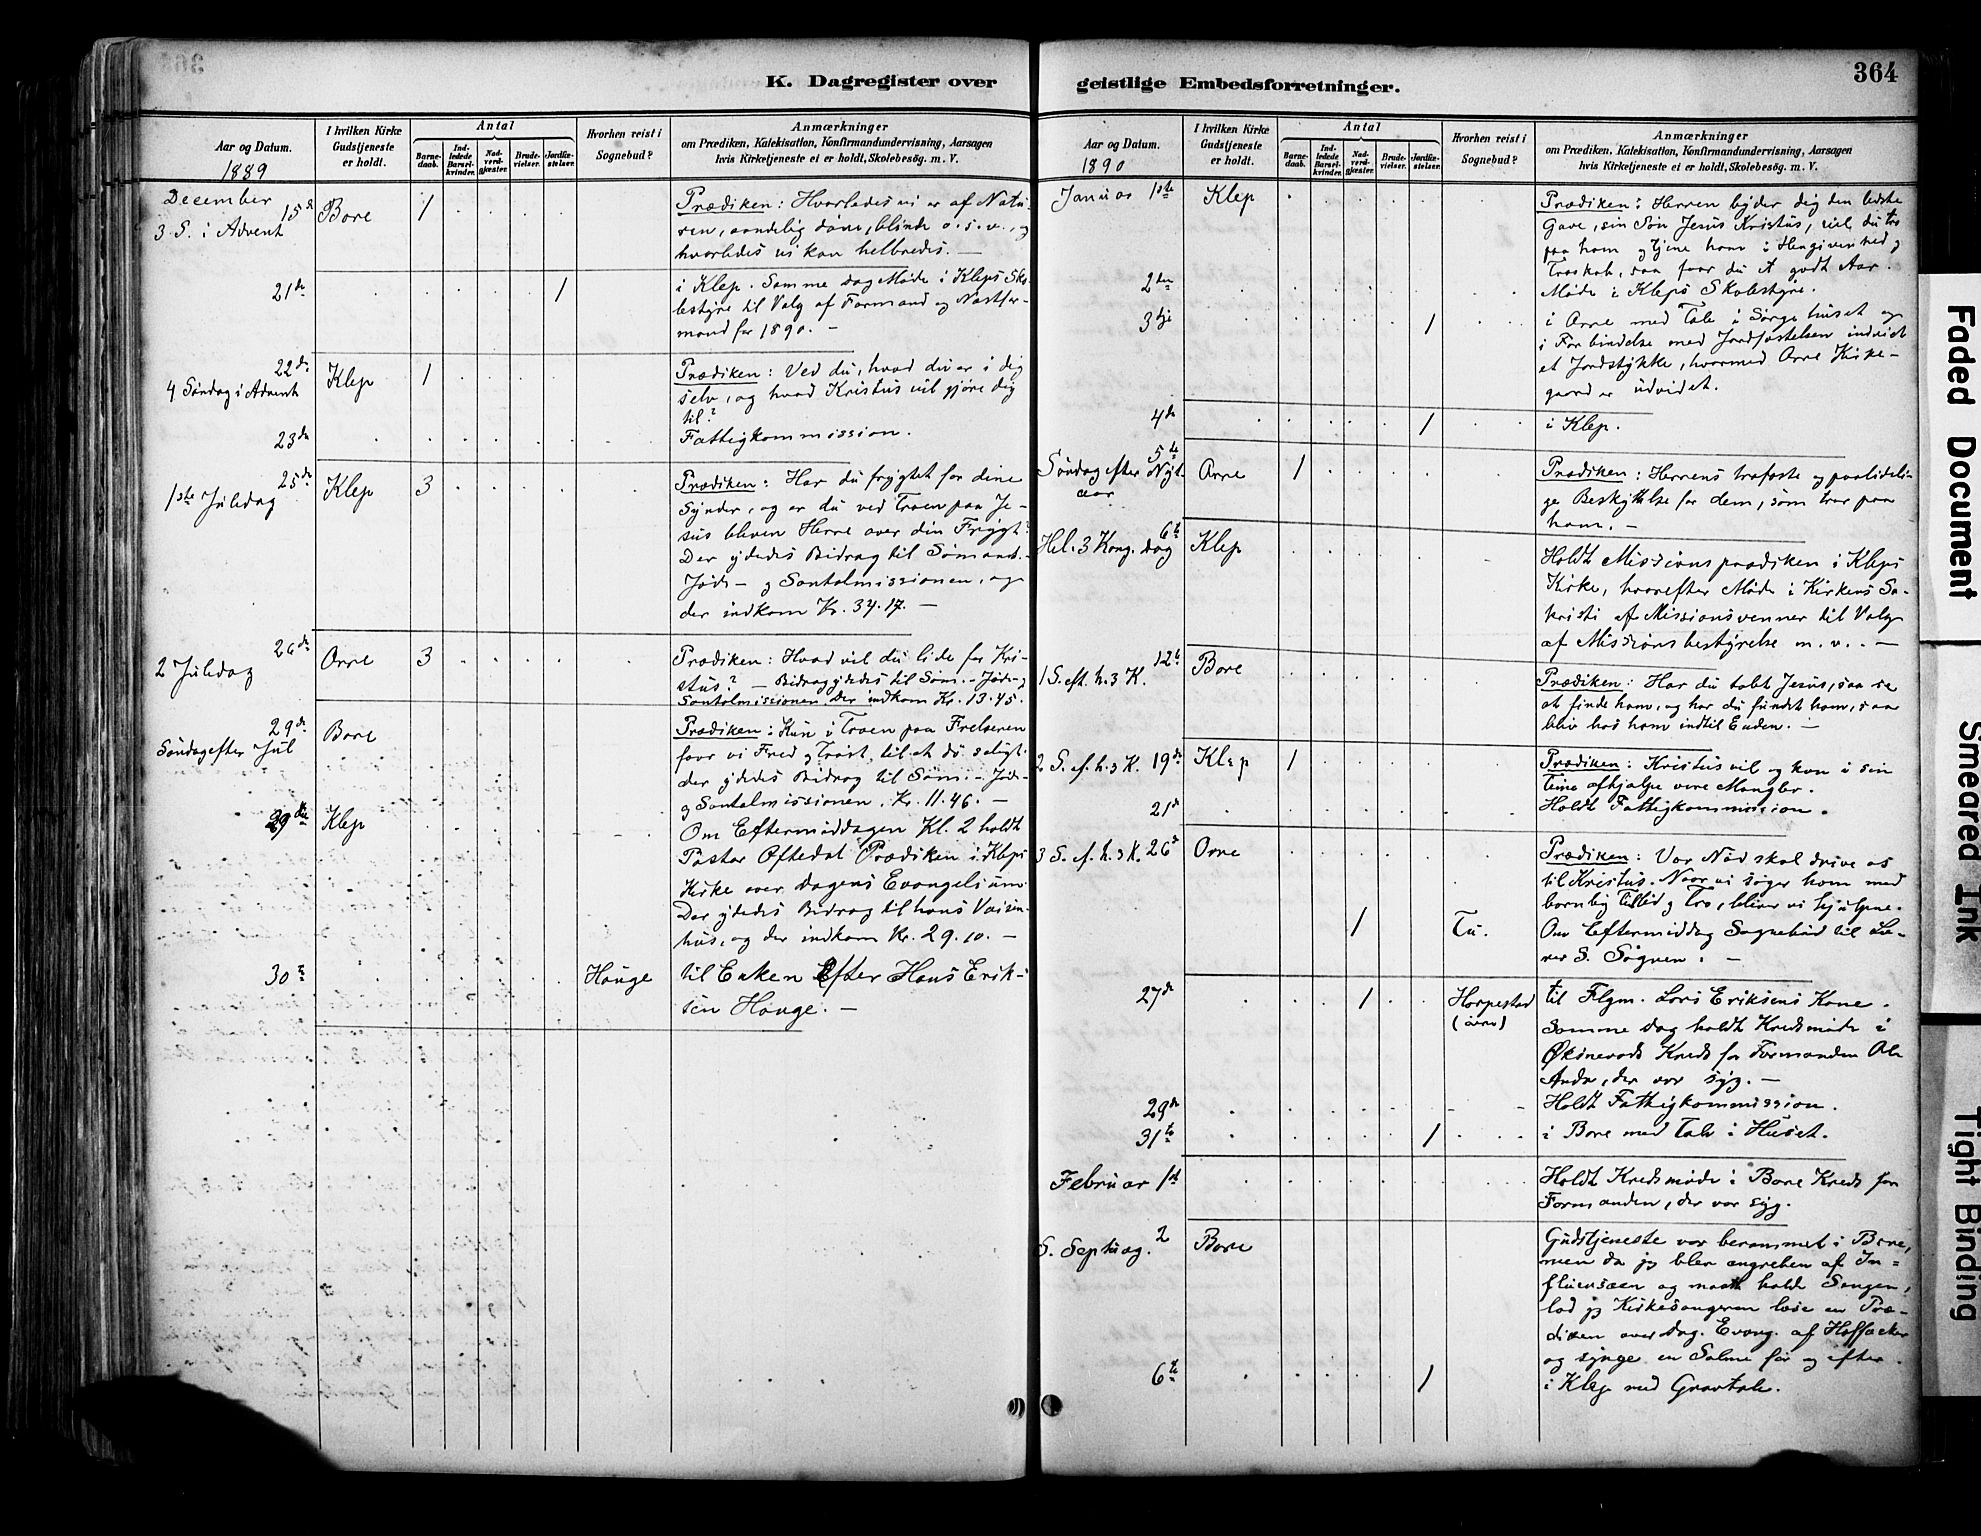 364
K. Dagregister over
geistlige Embedsforretninger.
Aar og Datum.
1889
I hvilken Kirke
Gudstjeneste
er holdt.
Antal
Barne-
daab.
Ind-
ledede
Barsel-
kvinder.
Nad-
verd-
gjæster.
Brude-
vielser.
Jordfæ-
stelser.
Hvorhen reist i
Sognebud?
Anmærkninger
om Prædiken, Katekisation, Konfirmandundervisning, Aarsagen
hvis Kirketjeneste ei er holdt, Skolebesög. m. V.
December
15de
3 S. i Advent
Bore
1
Prædiken: Hvorledes vi er af Natu-
ren, aandelig døve, blinde o.s.v., og
hvorledes vi kan helbredes. —
21de
1
i Klep. Samme Dag Møde i Kleps Sko-
lestyre til Valg af Formand og Næstfor-
mand for 1890. —
22de
4 Søndag i Advent
Klep
1
Prædiken: Ved du, hvad du er i dig
selv, og hvad Kristus vil gjøre dig
til?
23de
Fattigkommission.
25de
1ste Juledag
Klep
3
Prædiken: Har du frygtet for dine
Synder, og er du ved Troen paa Je-
sus bleven Herre over din Frygt?
Der ydedes Bidrag til Sømands-
Jøde- og Santalmissionen, og
der indkom Kr. 34.17. —
26de
2 Juledag
Orre
3
Prædiken: Hvad vil du lide for Kri-
stus? — Bidrag ydedes til Søm. - Jøde- og
Santalmissionen. Der indkom Kr. 13.45.
29de
Søndag efter Jul
Bore
Prædiken: Kun i Troen paa Frelseren
faar vi Fred og Trøst, til at dø saligt.
der ydedes Bidrag til Søm. - Jøde-
og Santalmissionen. Kr. 11.46. —
29de
Klep
Om Eftermiddagen Kl. 2 holdt
Pastor Oftedal Prædiken i Kleps
Kirke over Dagens Evangelium.
Der ydedes Bidrag til hans Vaisen-
hus, og der indkom Kr. 29.10. —
30te
Hauge
til Enken Efter Hans Erik-
sen Hauge. —
Aar og Datum.
1890
I hvilken Kirke
Gudstjeneste
er holdt.
Antal
Barne-
daab.
Ind-
ledede
Barsel-
kvinder.
Nad-
verd-
gjæster.
Brude-
vielser.
Jordfæ-
stelser.
Hvorhen reist i
Sognebud?
Anmærkninger
om Prædiken, Katekisation, Konfirmandundervisning, Aarsagen
hvis Kirketjeneste ei er holdt, Skolebesög. m. V.
Januar 1ste
Klep
Prædiken: Herren byder dig den bedste
Gave, sin Søn Jesus Kristus, vil du tro
paa ham og tjene ham i Hengivenhed og
Troskab, saa faar du et godt Aar.
2den
Møde i Kleps Skolestyre.
3dje
1
i Orre med Tale i Sørgehuset og
i Forbindelse med Jordfæstelsen indviet
et Jordstykke, hvormed Orre Kirke-
gaard er udvidet.
4de
1
i Klep.
5te
Søndag efter Nyt-
aar
Orre
1
Prædiken: Herrens trofaste og paalideli-
ge Beskyttelse for dem, som tror paa
ham. —
6te
Hel. 3 Kong. dag
Klep
Holdt Missionsprædiken i Kleps
Kirke, hvorefter Møde i Kirkens Sa-
kristi af Missionsvenner til Valg
af Missionsbestyrelse m. v. —
1 S. eft. h. 3 K. 12te
Bore
Prædiken: Har du tabt Jesus, saa se
at finde ham, og har du fundet ham, saa
bliv hos ham indtil Enden. —
2 S. ef. h. 3 K. 19de
Klep
1
Prædiken: Kristus vil og kan i sin
Time afhjælpe vore Mangler.
21de
Holdt Fattigkommission.
3 S. ef. h. 3 K. 26de
Orre
Prædiken: Vor Nød skal drive os
til Kristus. Naar vi søger ham med
barnlig Tillid og Tro, bliver vi hjulpne.
1
Tu.
Om Eftermiddag Sognebud til
27de
1
Horpestad
til Flgm. Lars Eriksens Kone.
Samme Dag holdt Kredsmøde i
Øksnevads Kreds for Formanden Ole
Anda, der var syg. —
29de
Holdt Fattigkommission.
31te
1
i Bore med Tale i Huset.
Februar 1ste
Holdt Kredsmøde i Bore Kreds for
Formanden, der var syg.
S. Septuag. 2
Bore
Gudstjeneste var berammet i Bore,
men da jeg blev angreben af In-
fluensaen og maatte holde Sengen,
lod jeg Kirkesangeren læse en Præ-
diken over Dag. Evang. af Hoffacker
og synge en Salme før og efter.
6te
1
i Klep med Gravtale.
Faded Document
Smeared Ink
Tight Binding